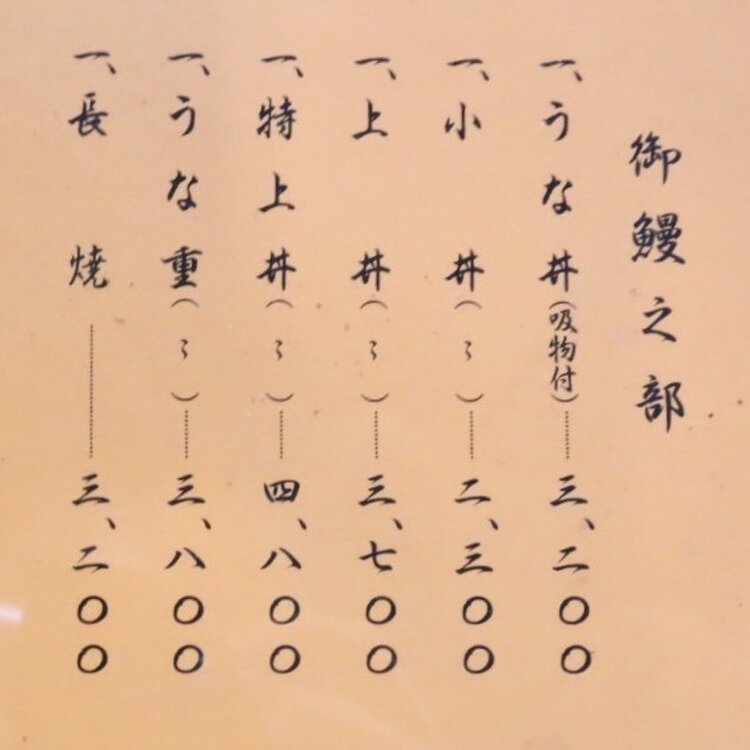 御鰻之部
一、うな丼(吸物付)……三、二〇〇
一、小丼(〃)……二、三〇〇
一、上丼(〃)……三、七〇〇
一、特上丼(〃)……四、八〇〇
一、うな重(〃)……三、八〇〇
一、長焼……三、二〇〇